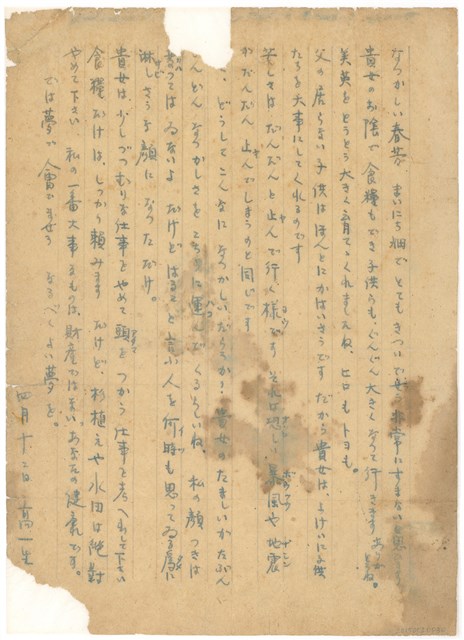 なつかしい春芳 まいにち畑で とてもきついでせう 非常にすまないと思ひ
貴女のお陰で 食糧もでき子供らも、ぐんぐん大きくなって行きます
美英をとうとう大きく育てゝくれましたね、ヒロもトヨも。
父の居らない子供はほんとにかはいさうです だから貴女は、よけいに子供
たちを大事にしてくれるのです
苦しさはだんだんと止んで行く様です それは恐しい暴風や地震
がだんだん止んでしまうのと同じです
どうしてこんなになつかしいだらうか? 貴女のたましいがたぶん
どんどんなつかしさをこちらに運んでくるらしいね、私の顔つきは
変ってはゐないよ だけどはること言ふ人を何時も思ってゐる為に
淋しさうな顔に なっただけ。
貴女は、少しづつむりな仕事をやめて頭をつかう仕事を考へ出して下さい
食糧だけは、しっかり頼みます だけど、杉植えや水田は絶対
やめて下さい 私の一番大事なものは、財産ではない、あなたの健康です。
では夢で会ひませう なるべくよい夢を。
四月十二日 高一生